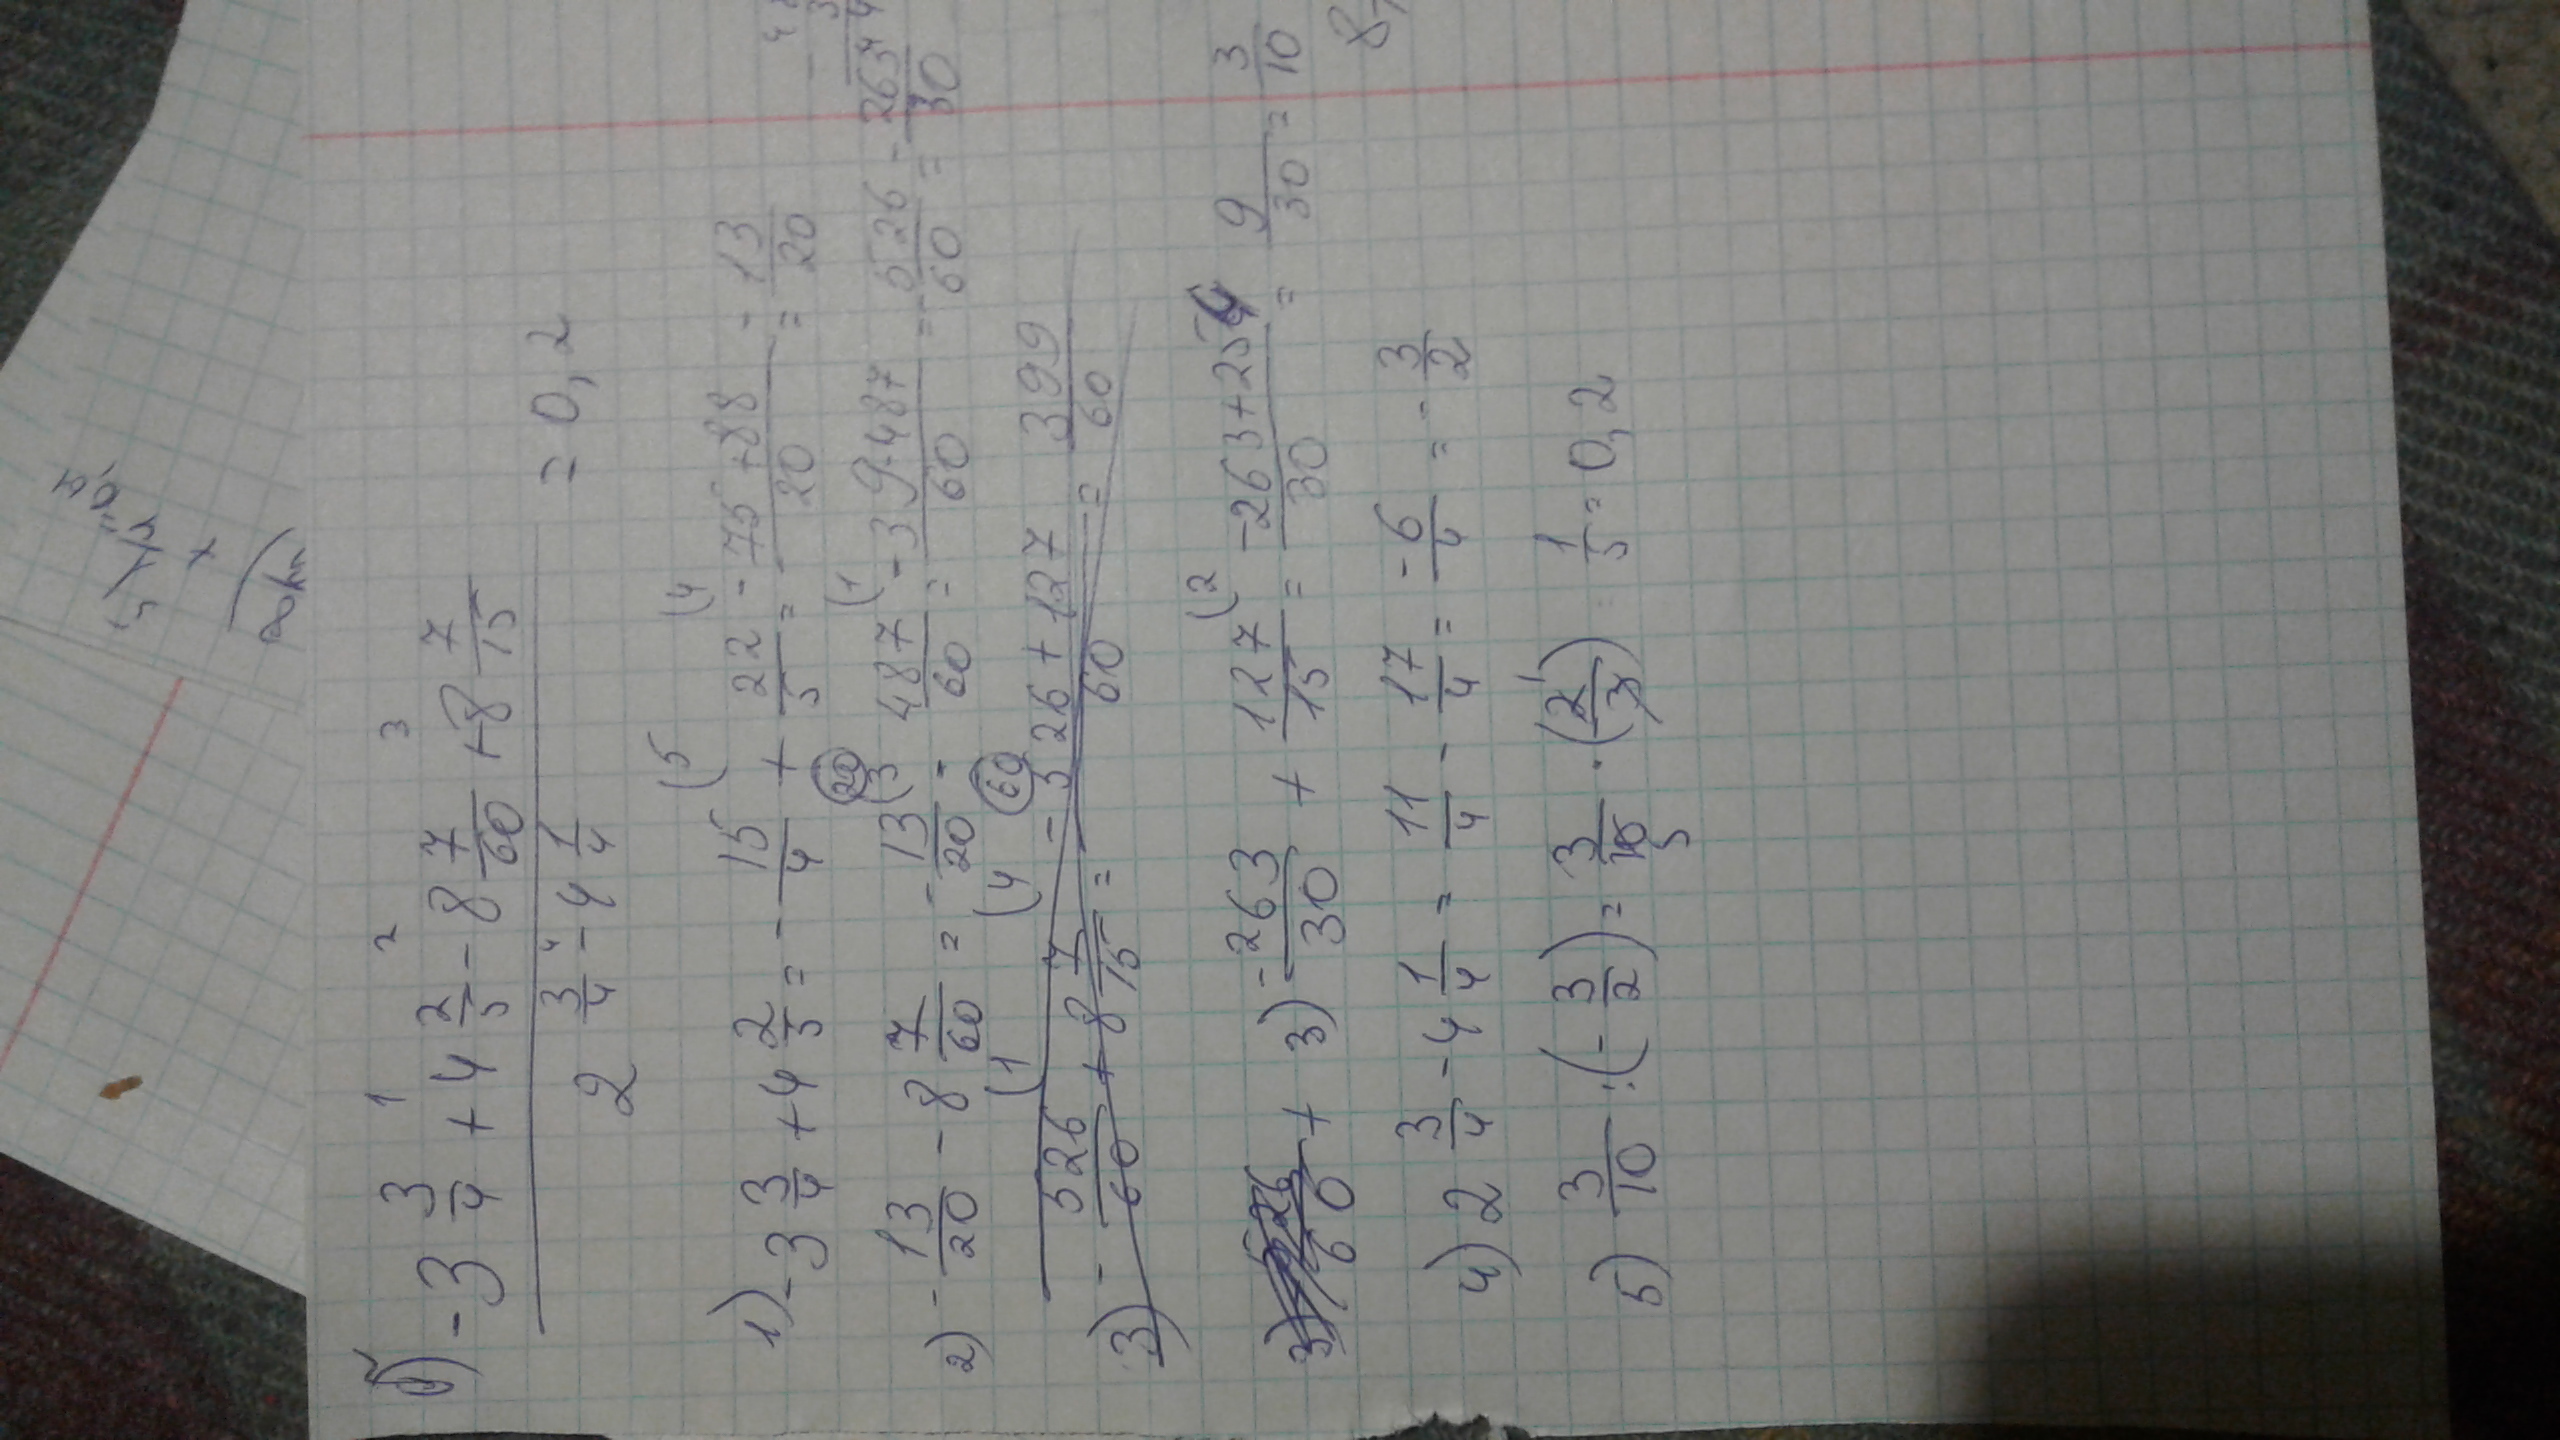 б) -3 3/4 + 4 2/5 - 8 7/60 + 8 7/15
1 2 3
2 3/4 - 4 1/4 = 0,2
4
1) -3 3/4 + 4 2/5 = - 15/4 (5 + 22/5 (4 = -75+88/20 = - 13/20
20
2) - 13/20 - 8 7/60 = - 13/20 (3 - 487/60 (1 = -39-487/60 = - 526/60 = - 263/30
60
3) - 526/60 (1 + 8 7/15 (4 = -526+127/60 = 399/60
3) 526/60 + 3) -263/30 + 127/15 (2 = -263+254/30 = 9/30 = 3/10
4) 2 3/4 - 4 1/4 = 11/4 - 17/4 = -6/4 = - 3/2
5) 3/10 : (- 3/2) = 3/10 5 · (2/3) 1 1/5 = 0,2